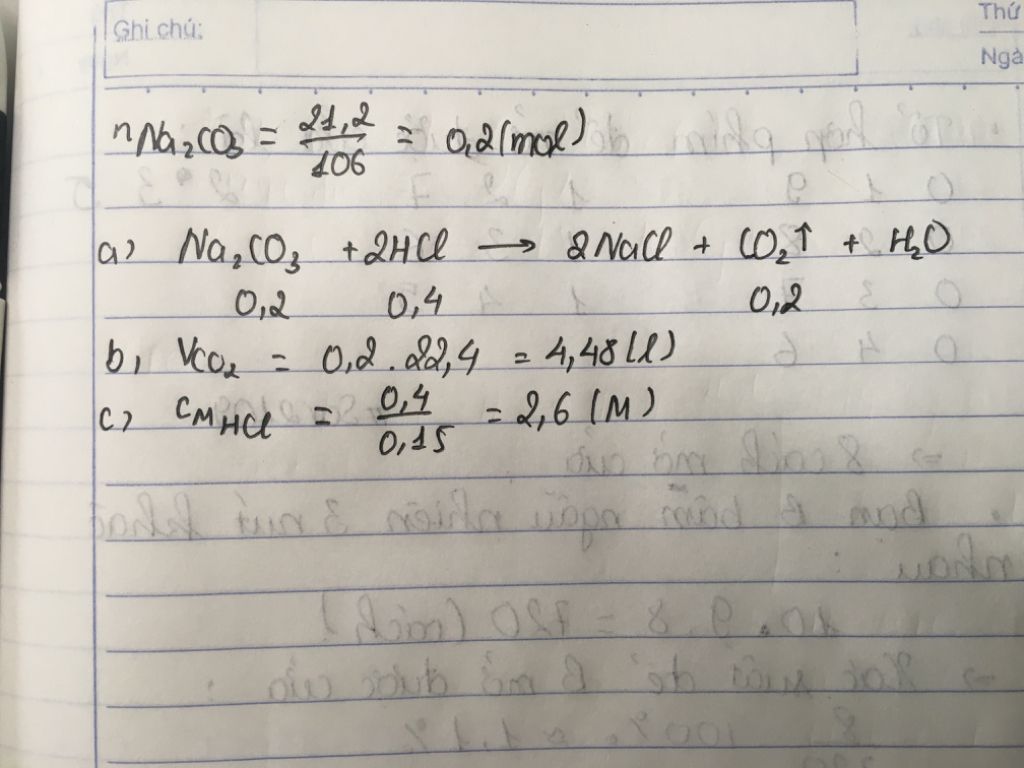 Ghi chú:
Thứ
Ngà
nNa₂CO₃ = 21,2/106 = 0,2 (mol)
a) Na₂CO₃ + 2HCl → 2NaCl + CO₂↑ + H₂O
0,2 0,4 0,2
b, VCO₂ = 0,2 . 22,4 = 4,48 (l)
c) CMHCl = 0,4/0,15 = 2,6 (M)